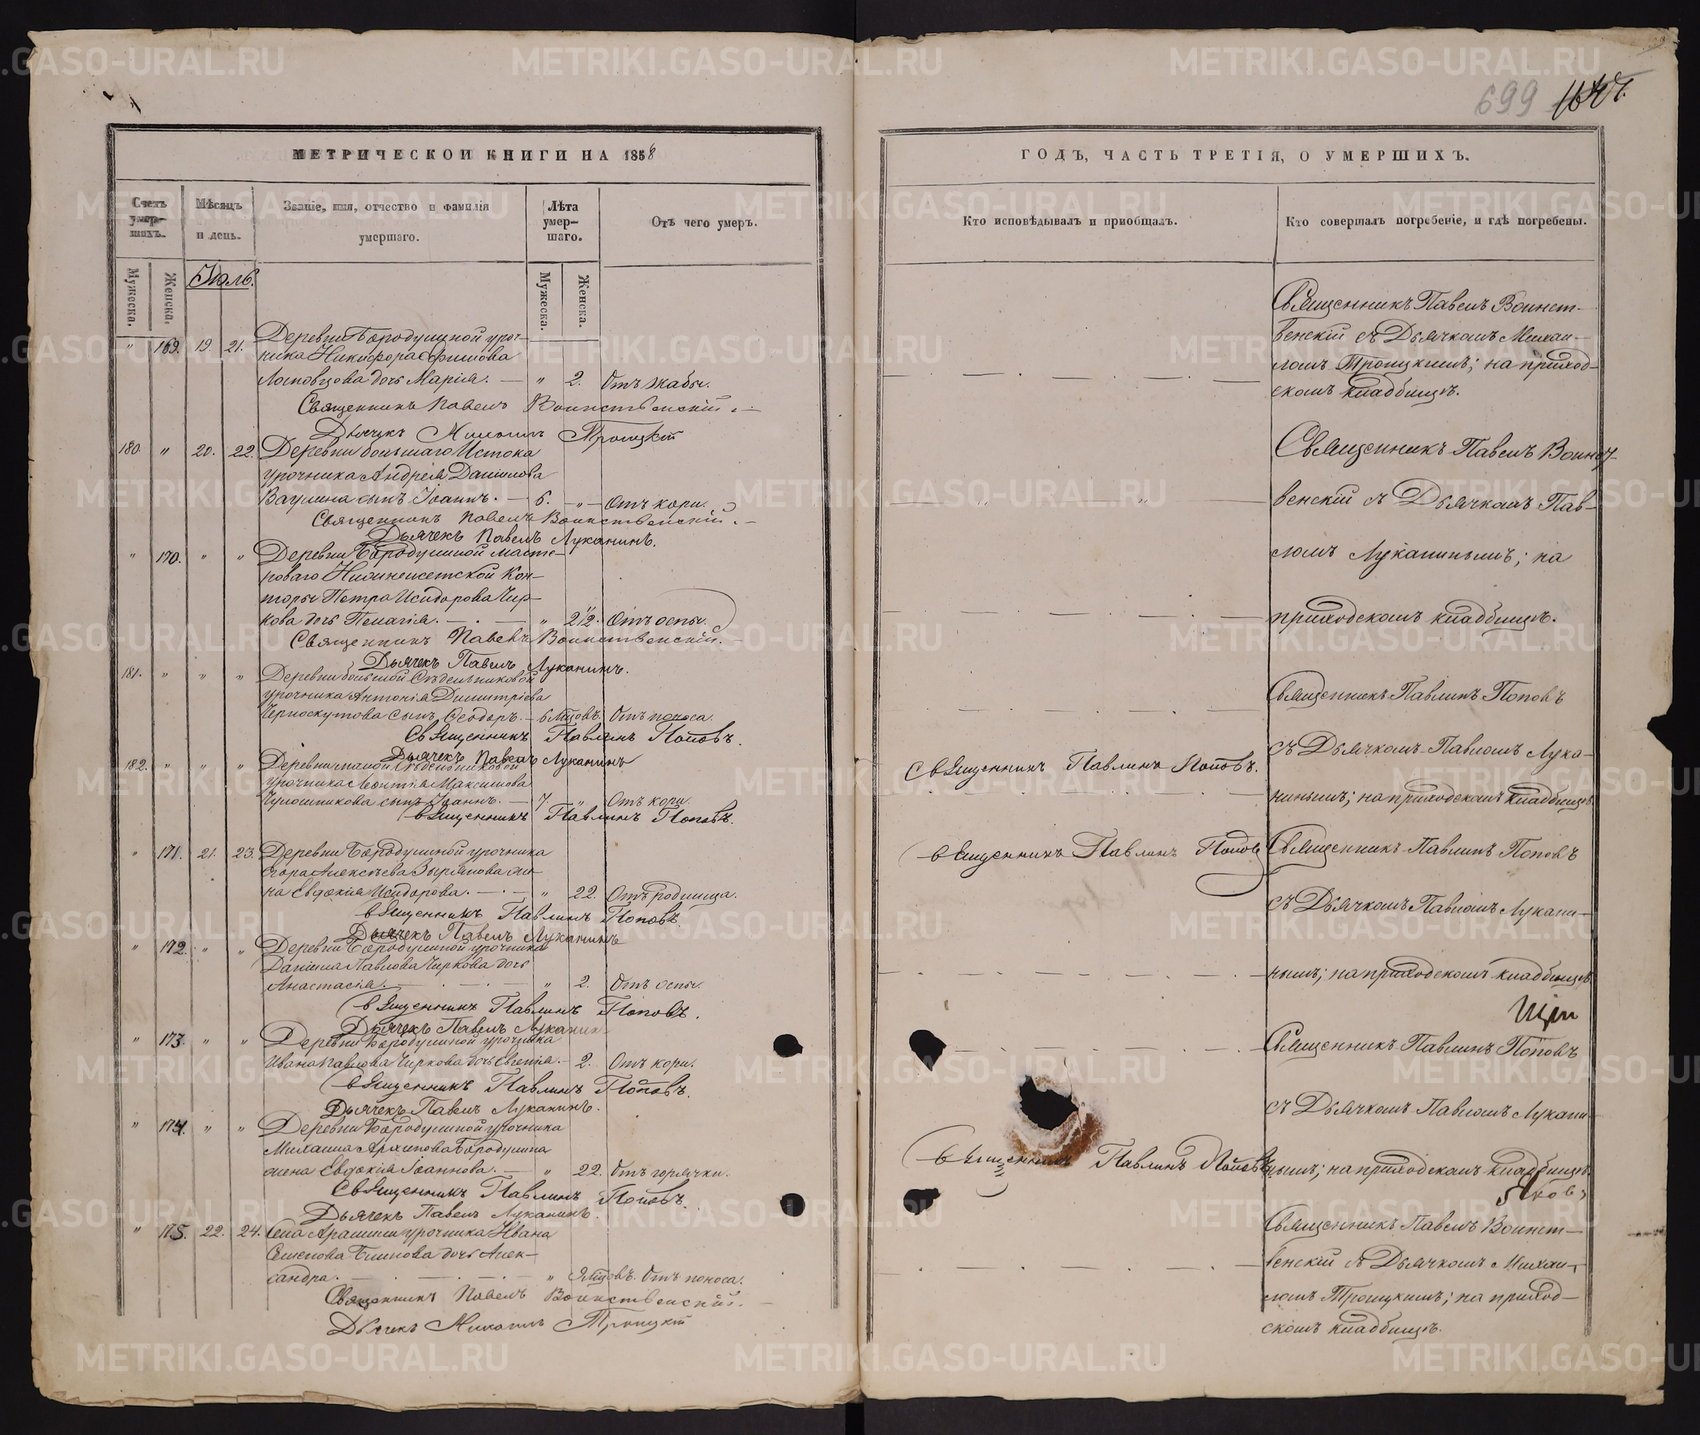 699
МЕТРИЧЕСКОЙ КНИГИ НА 1858
ГОДЪ, ЧАСТЬ ТРЕТІЯ, О УМЕРШИХЪ.
Счетъ умер-шихъ.
Мѣсяцъ и день.
Званіе, имя, отчество и фамилія умершаго.
Лѣта умер-шаго.
Отъ чего умеръ.
Кто исповѣдывалъ и приобщалъ.
Кто совершалъ погребеніе, и гдѣ погребены.
Мужеска.
Женска.
Мужеска.
Женска.
Іюль.
" 169. 19 21. Деревни Бородулиной уроч-
ника Никифора
дочь Марія. — " 2. Отъ жабы.
Священникъ Павелъ Воинственскій.
Дьячекъ Михаилъ Троицкій
Священникъ Павелъ Воинст-
венскій съ Дьячкомъ Михаи-
ломъ Троицкимъ; на приход-
скомъ кладбищѣ.
180. " 20. 22. Деревни большаго Истока
урочника Андрея Данилова
Ваулина сынъ Іоаннъ. — 6. " Отъ кори.
Священникъ Павелъ Воинственскій.
Дьячекъ Павелъ Луканинъ.
Священникъ Павелъ Воинст-
венскій съ Дьячкомъ Пав-
ломъ Луканинымъ; на
приходскомъ кладбищѣ.
" 170. " " Деревни Бородулиной масте-
роваго Нижнеисетской Кон-
торы Петра Исидорова Чир-
кова дочь Пелагія. " 2½. Отъ оспы.
Священникъ Павелъ Воинственскій.
Дьячекъ Павелъ Луканинъ.
181. " " " Деревни большой Седельниковой
урочника Антонія Димитріева
Черноскутова сынъ Ѳеодоръ. — 6 мѣсцовъ. Отъ поноса.
Священникъ Павлинъ Поповъ.
Дьячекъ Павелъ Луканинъ
Священникъ Павлинъ Поповъ
съ Дьячкомъ Павломъ Лука-
нинымъ; на приходскомъ кладбищѣ.
182. " " " Деревни малой Седельниковой
урочника Леонтія Максимова
сынъ Іоаннъ. — 7 " Отъ кори.
Священникъ Павлинъ Поповъ.
Священникъ Павлинъ Поповъ.
" 171. 21. 23. Деревни Бородулиной урочника
Егора Алексѣева Зырянова же-
на Евдокія Исидорова. — " 22. Отъ родимца.
Священникъ Павлинъ Поповъ.
Дьячекъ Павелъ Луканинъ
Священникъ Павлинъ Поповъ
Священникъ Павлинъ Поповъ
съ Дьячкомъ Павломъ Лукани-
нымъ; на приходскомъ кладбищѣ
" 172. " " Деревни Бородулиной урочника
Даніила Павлова Чиркова дочь
Анастасія. " 2. Отъ оспы.
Священникъ Павлинъ Поповъ.
Дьячекъ Павелъ Луканинъ
" 173. " " Деревни Бородулиной урочника
Ивана Павлова Чиркова дочь Евгенія. — 2. Отъ кори.
Священникъ Павлинъ Поповъ.
Дьячекъ Павелъ Луканинъ.
Священникъ Павлинъ Поповъ
съ Дьячкомъ Павломъ Лукани-
нымъ; на приходскомъ кладбищѣ
" 174. " " Деревни Бородулиной урочника
Михаила Архипова Бородулина
жена Евдокія Іоаннова. — " 22. Отъ горячки.
Священникъ Павлинъ Поповъ.
Дьячекъ Павелъ Луканинъ.
Священникъ Павлинъ Поповъ
" 175. 22. 24. Села Арамили урочника Ивана
Семенова дочь Алек-
сандра. " 9 мѣсцовъ. Отъ поноса.
Священникъ Павелъ Воинственскій.
Дьячекъ Михаилъ Троицкій
Священникъ Павелъ Воинст-
венскій съ Дьячкомъ Михаи-
ломъ Троицкимъ; на приход-
скомъ кладбищѣ.
METRIKI.GASO-URAL.RU